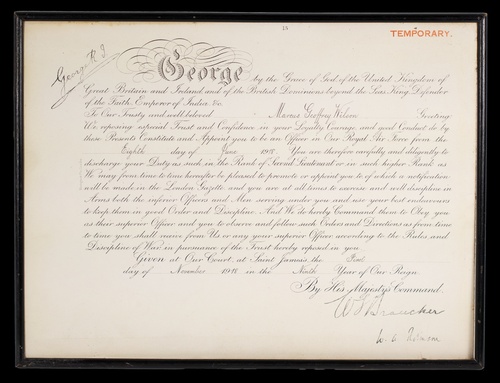 TEMPORARY.
George R I
George by the Grace of God, of the United Kingdom of
Great Britain and Ireland and of the British Dominions beyond the Seas King, Defender
of the Faith, Emperor of India, &c.
To Our Trusty and well beloved Marcus Geoffrey Greeting
We, reposing especial Trust and Confidence in your Loyalty, Courage, and good Conduct do by
these Presents Constitute and Appoint you to be an Officer in Our Royal Air Force from the
Eighth day of June 1918. You are therefore carefully and diligently to
discharge your Duty as such in the Rank of Second Lieutenant or in such higher Rank as
We may from time to time hereafter be pleased to promote or appoint you to of which a notification
will be made in the London Gazette, and you are at all times to exercise and well discipline in
Arms both the inferior Officers and Men serving under you and use your best endeavours
to keep them in good Order and Discipline. And We do hereby Command them to Obey you
as their superior Officer and you to observe and follow such Orders and Directions as from time
to time you shall receive from Us, or any your superior Officer according to the Rules and
Discipline of War, in pursuance of the Trust hereby reposed in you.
Given at Our Court, at Saint James's, the First
day of November 1918 in the Ninth Year of Our Reign
By His Majesty's Command.